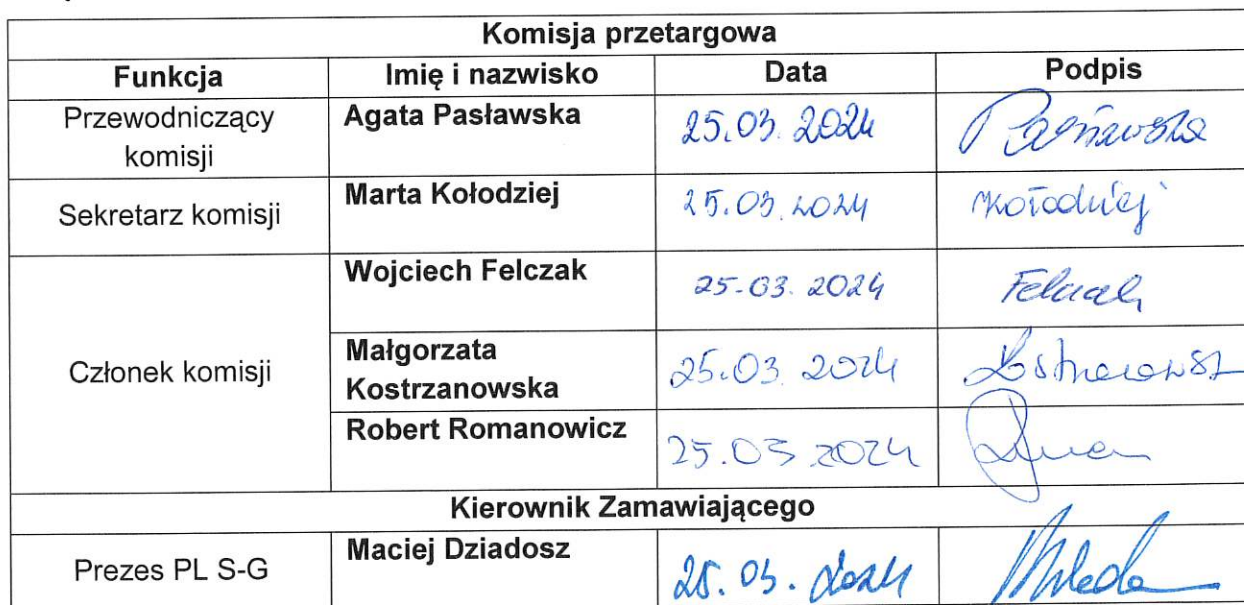 Komisja przetargowa
Funkcja Imię i nazwisko Data Podpis
Przewodniczący komisji Agata Pasławska 25.03.2024 Pasławska
Sekretarz komisji Marta Kołodziej 25.03.2024 Kołodziej
Wojciech Felczak 25-03.2024 Felczak
Członek komisji Małgorzata Kostrzanowska 25.03.2024
Robert Romanowicz 25.03.2024
Kierownik Zamawiającego
Prezes PL S-G Maciej Dziadosz 25.03.2024